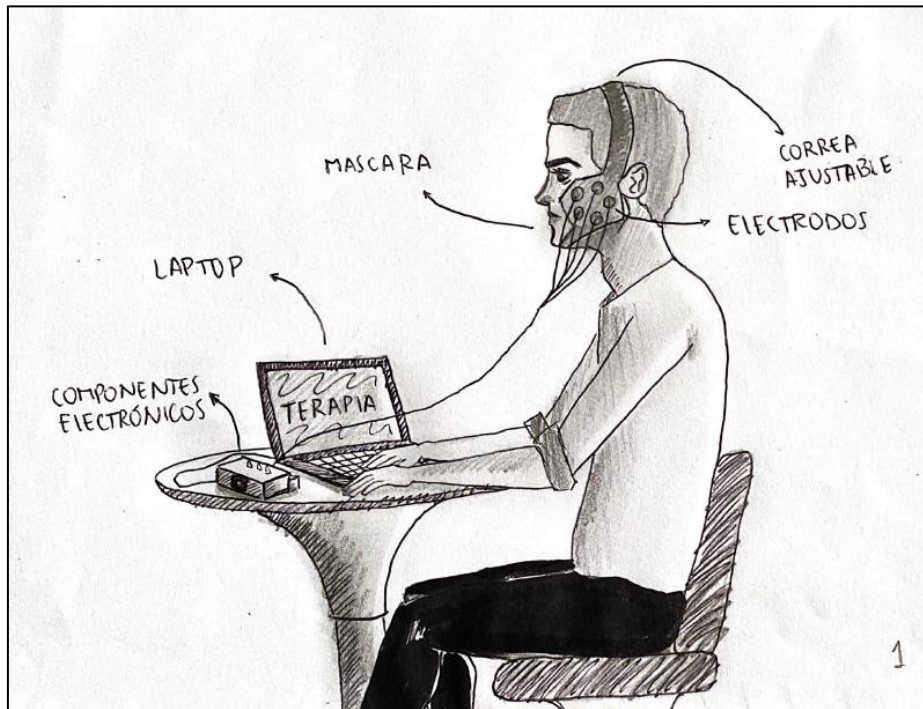 CORREA
AJUSTABLE
MASCARA
ELECTRODOS
LAPTOP
COMPONENTES
ELECTRÓNICOS
TERAPIA
1